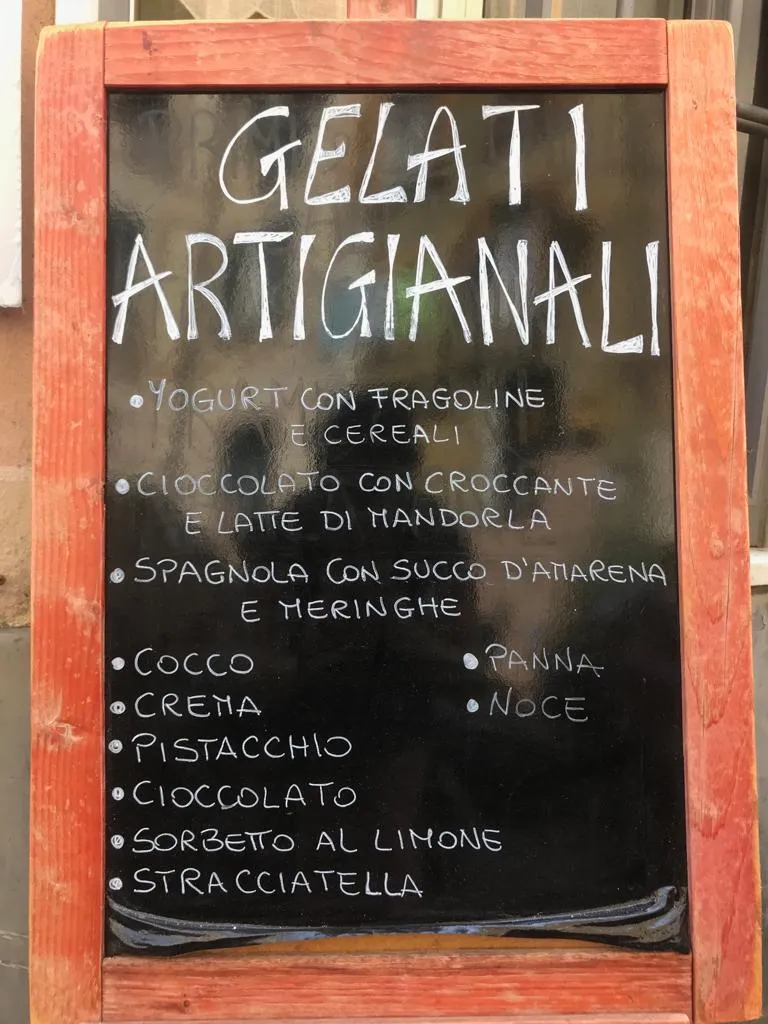 GELATI
ARTIGIANALI
• YOGURT CON FRAGOLINE
E CEREALI
• CIOCCOLATO CON CROCCANTE
E LATTE DI MANDORLA
• SPAGNOLA CON SUCCO D'AMARENA
E MERINGHE
• COCCO
• CREMA
• PISTACCHIO
• CIOCCOLATO
• SORBETTO AL LIMONE
• STRACCIATELLA
• PANNA
• NOCE